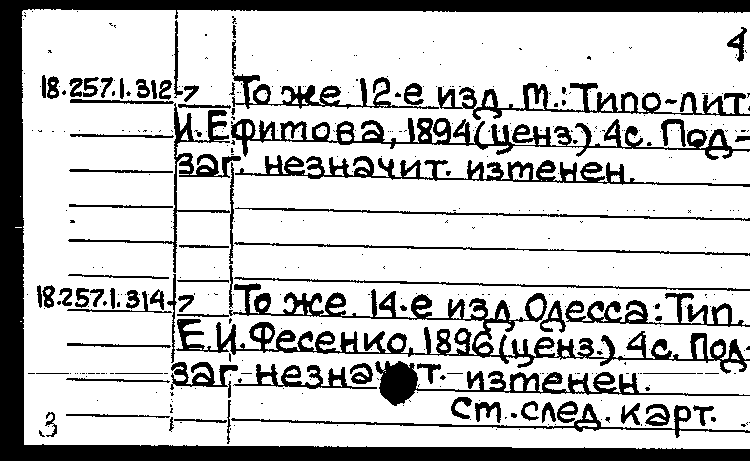 4
18.257.1.312-7 То же. 12-е изд. М.: Типо-лит.
И. Ефитова, 1894(ценз.). 4с. Под-
заг. незначит. изтенен.
18.257.1.314-7 То же. 14-е изд. Одесса: Тип.
Е.И. Фесенко, 1896(ценз.). 4с. Под-
заг. незначит. изтенен.
Ст. след. карт.
3